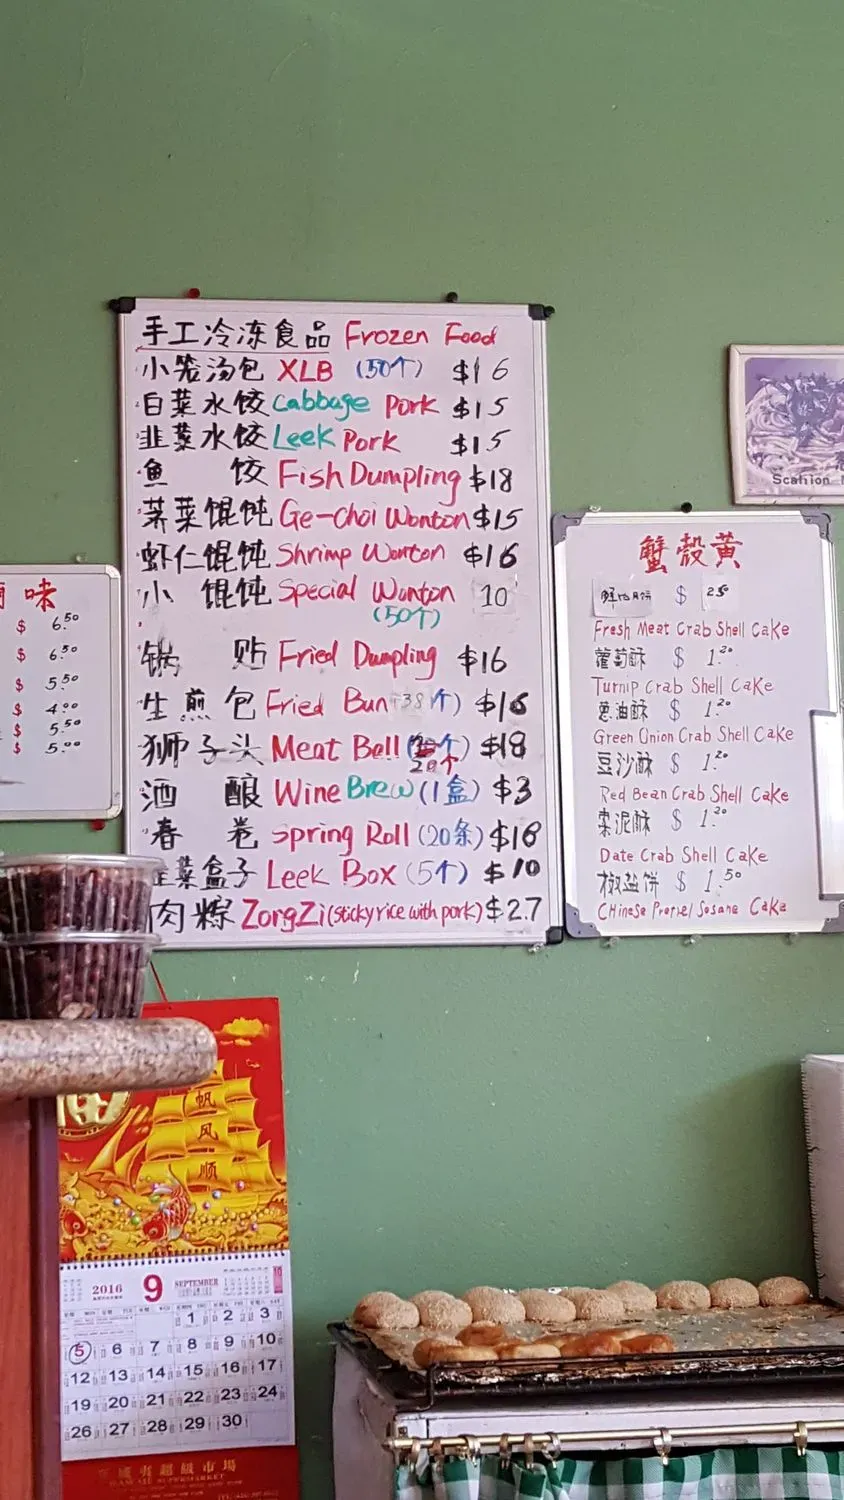 手工冷冻食品 Frozen Food
小笼汤包 XLB (50个) $16
白菜水饺 Cabbage Pork $15
韭菜水饺 Leek Pork $15
鱼 饺 Fish Dumpling $18
荠菜馄饨 Ge-choi Wonton $15
虾仁馄饨 Shrimp Wonton $16
小 馄饨 Special Wonton 10
(50个)
锅 贴 Fried Dumpling $16
生煎包 Fried Bun (38个) $16
狮子头 Meat Ball 20个 $18
酒 酿 Wine Brew (1盒) $3
春 卷 Spring Roll (20条) $18
韭菜盒子 Leek Box (5个) $10
肉粽 ZongZi (sticky rice with pork) $2.7
味
$ 6.50
$ 6.50
$ 5.50
$ 4.00
$ 5.50
$ 5.00
Scallion
蟹殼黄
鲜肉月饼 $ 2.50
Fresh Meat Crab Shell Cake
蘿蔔酥 $ 1.20
Turnip Crab Shell Cake
葱油酥 $ 1.20
Green Onion Crab Shell Cake
豆沙酥 $ 1.20
Red Bean Crab Shell Cake
枣泥酥 $ 1.20
Date Crab Shell Cake
椒盐饼 $ 1.50
CHinese Pretzel Sesame Cake
帆
风
顺
2016 9 SEPTEMBER
1 2 3
5 6 7 8 9 10
12 13 14 15 16 17
19 20 21 22 23 24
26 27 28 29 30
超級市場
SUPERMARKET